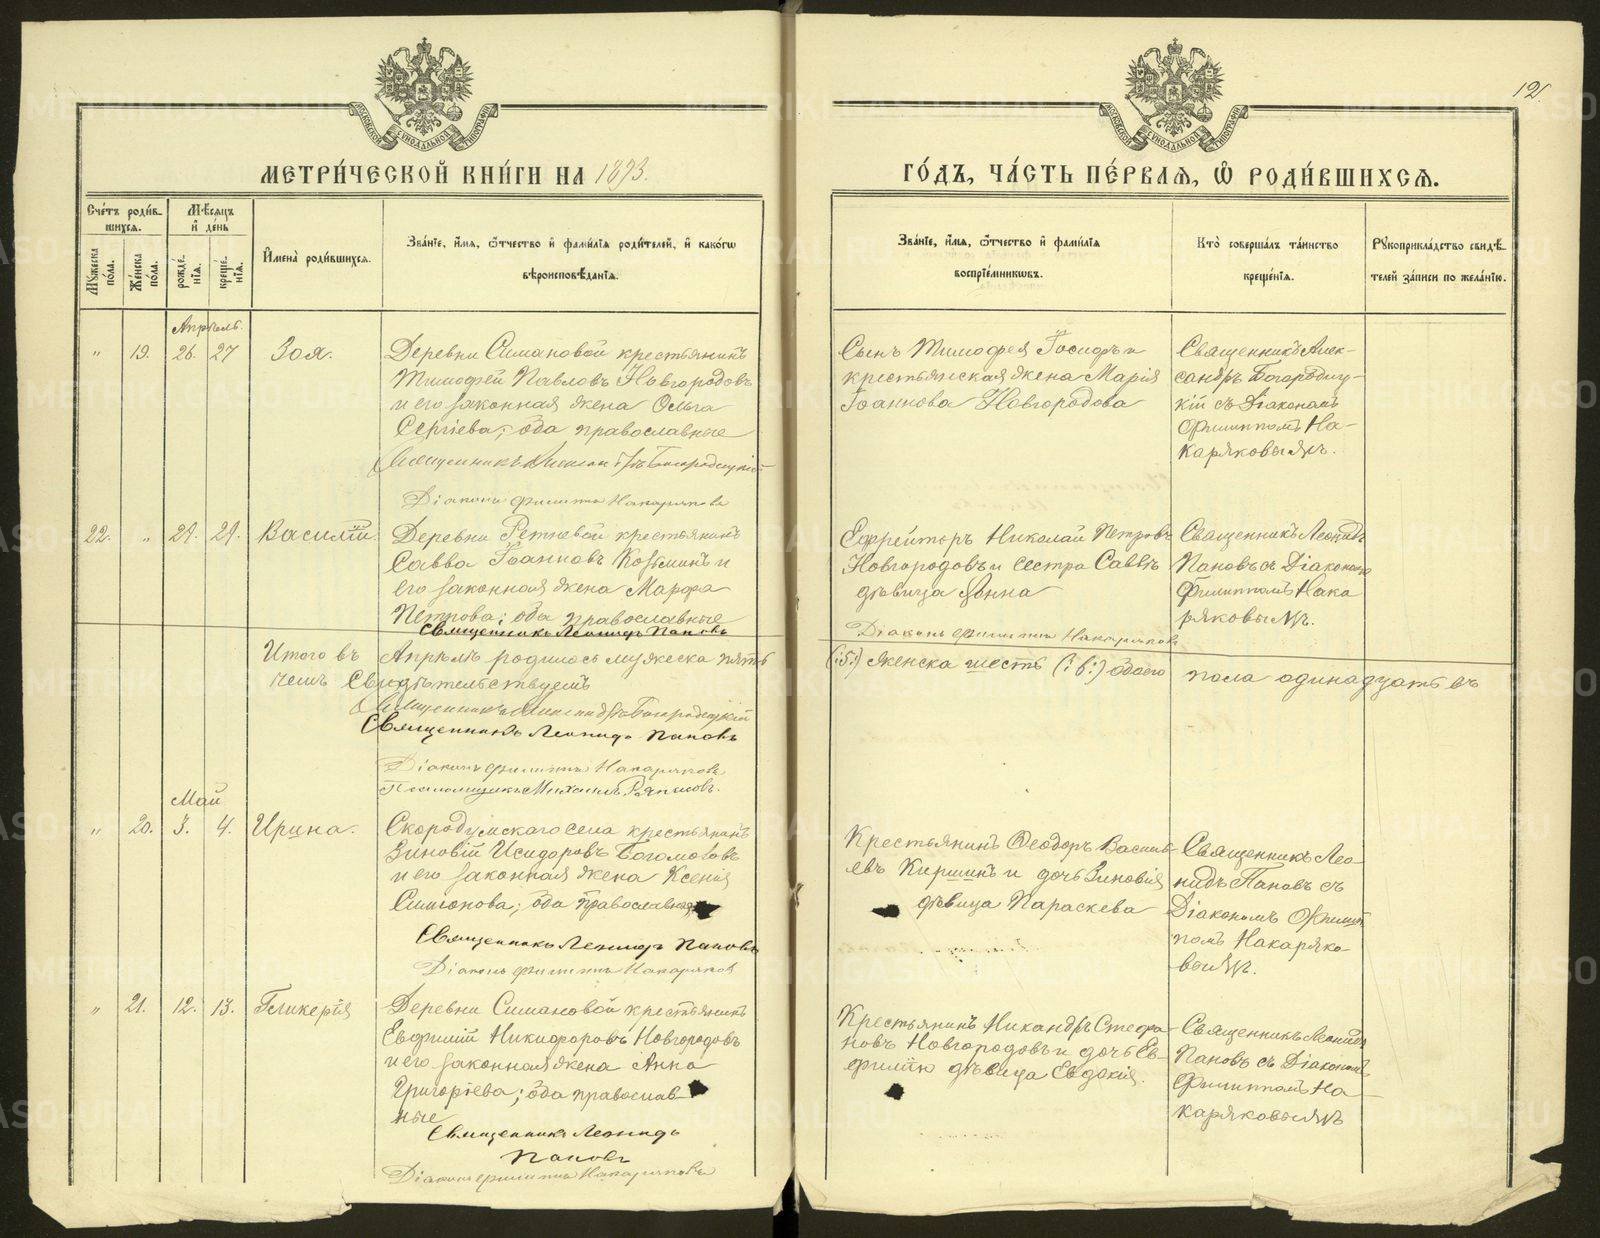 12.
МЕТРИ́ЧЕСКОЙ КНИ́ГИ НА 1893.
ГО́ДЪ, ЧА́СТЬ ПЕ́РВАЯ, Ѽ РОДИ́ВШИХСЯ.
Сче́тъ роди́в-
шихся.
Мѣ́сяцъ
и де́нь
И҆мена̀ роди́вшихся.
Зва́нїе, и҆́мя, ѻ҆́тчество и҆ фами́лїя роди́телей, и҆ како́гѡ
вѣроисповѣ́данїя.
Му́жеска
по́ла.
Же́нска
по́ла.
рожде́-
нїя.
креще́-
нїя.
Зва́нїе, и҆́мя, ѻ҆́тчество и҆ фами́лїя
воспрїе́мниковъ.
Кто̀ соверша́лъ та́инство
креще́нїя.
Рукоприкла́дство свидѣ́-
телей за́писи по жела́нїю.
Апрѣль.
" 19. 26. 27 Зоя.
Деревни Симановой крестьянинъ
Тимофей Павловъ Новгородовъ
и его законная жена Ольга
Сергіева; оба православные
Священникъ Александръ Богородицкій
Діаконъ Филиппъ Накаряковъ
Сынъ Тимофея Іосифъ и
крестьянская жена Марія
Іоаннова Новгородова
Священникъ Алек-
сандръ Богородиц-
кій съ Діакономъ
Филиппомъ На-
каряковымъ.
22. " 29. 29. Василій
Деревни Ретневой крестьянинъ
Савва Іоанновъ Козьминъ и
его законная жена Марфа
Петрова; оба православные
Священникъ Леонидъ Пановъ
Діаконъ Филиппъ Накаряковъ
Ефрейторъ Николай Петровъ
Новгородовъ и сестра Саввы
дѣвица Анна
Священникъ Леонидъ
Пановъ съ Діакономъ
Филиппомъ Нака
ряковымъ.
Итого въ Апрѣлѣ родилось мужеска пять (:5:) женска шесть (:6:) обоего пола одинадцать въ
чемъ Свидѣтельствуемъ
Священникъ Александръ Богородицкій
Священникъ Леонидъ Пановъ
Діаконъ Филиппъ Накаряковъ
Псаломщикъ Михаилъ Ряписовъ.
Май
" 20. 3. 4. Ирина.
Скородумскаго села крестьянинъ
Зиновій Исидоровъ Богомоловъ
и его законная жена Ксенія
Симеонова; оба православные
Священникъ Леонидъ Пановъ
Діаконъ Филиппъ Накаряков
Крестьянинъ Ѳеодоръ Василь-
евъ Киришнъ и дочь Зиновія
дѣвица Параскева
Священникъ Лео-
нидъ Пановъ съ
Діакономъ Филип-
помъ Накаряко-
вымъ.
" 21. 12. 13. Гликерія
Деревни Симановой крестьянинъ
Евфимій Никифоровъ Новгородовъ
и его законная жена Анна
Григоріева; оба православ-
ные
Священникъ Леонидъ
Пановъ
Діаконъ Филиппъ Накаряковъ
Крестьянинъ Никандръ Стефа-
новъ Новгородовъ и дочь Ев-
фимію дѣвица Евдокія.
Священникъ Леонидъ
Пановъ съ Діакономъ
Филиппомъ На-
каряковымъ